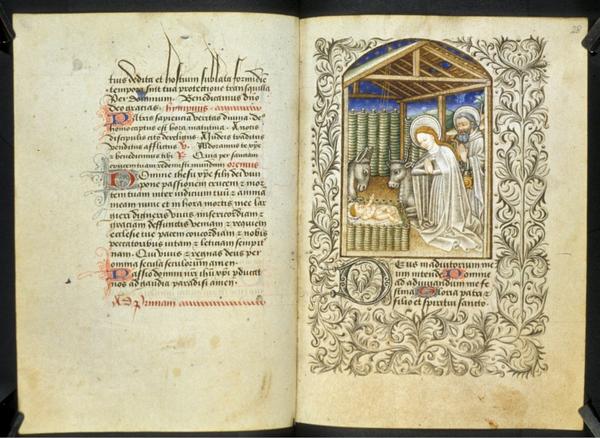 tuis dedita et hostium sublata formidie
tempora sint tua protectione tranquilla
Per Dominum. Benedicamus dno
Deo gracias. hympnus
Patris sapiencia veritas divina de
homo captus est hora matutina. A notis
discipulis cito derelictus. A iudeis traditus
venditus afflictus V. Adoramus te xpe
& benedicimus tibi R. Quia per sanctam
crucem tuam redemisti mundum oremus
Domine ihesu xpe fili dei viui
pone passionem crucem & mor
tem tuam inter iudicium tuum & anima
meam nunc et in hora mortis mee lar
giri digneris viuis misericordiam &
graciam defunctis veniam & requiem
ecclesie tue pacem concordiam & nobis
peccatoribus vitam & leticiam sempit
nam. Qui viuis & regnas deus per
omnia secula seculorum amen.
Passio domini nri ihu xpi pducat
nos ad gaudia paradisi amen.
Ad Primam
28
Deus in adiutorium me
um intende Domine
ad adiuvandum me fe
stina Gloria patri &
filio et spiritui sancto.